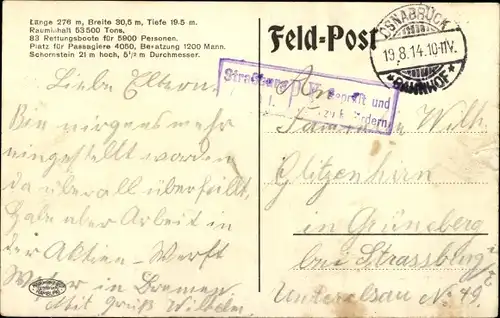 Länge 276 m, Breite 30,5 m, Tiefe 19.5 m.
Rauminhalt 53 500 Tons.
83 Rettungsboote für 5900 Personen.
Platz für Passagiere 4050, Besatzung 1200 Mann.
Schornstein 21 m hoch, 5½ m Durchmesser.
Liebe Eltern!
Bin nirgens mehr
eingestellt worden
da überall überfüllt,
Habe aber Arbeit in
der Aktien-Werft
Weser in Bremen.
Mit Gruß Wilhelm.
Feld-Post
OSNABRÜCK
19.8.14.10-11V.
* BAHNHOF *
Strassburg
Geprüft und
zu befördern
An
Familie Wilh.
Glitzenhirn
in Grüneberg
bei Strassburg i/
Unterelsau No 49,